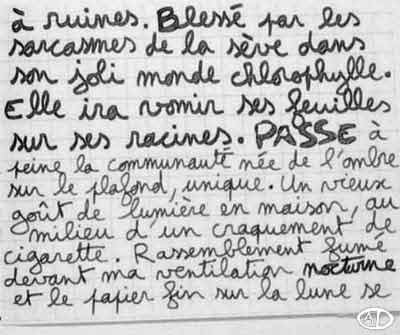 à ruines. Blessé par les
sarcasmes de la sève dans
son joli monde chlorophylle.
Elle ira vomir ses feuilles
sur ses racines. PASSE à
peine la communauté née de l'ombre
sur le plafond, unique. Un vieux
goût de lumière en maison, au
milieu d'un craquement de
cigarette. Rassemblement fume
devant ma ventilation nocturne
et le papier fin sur la lune se